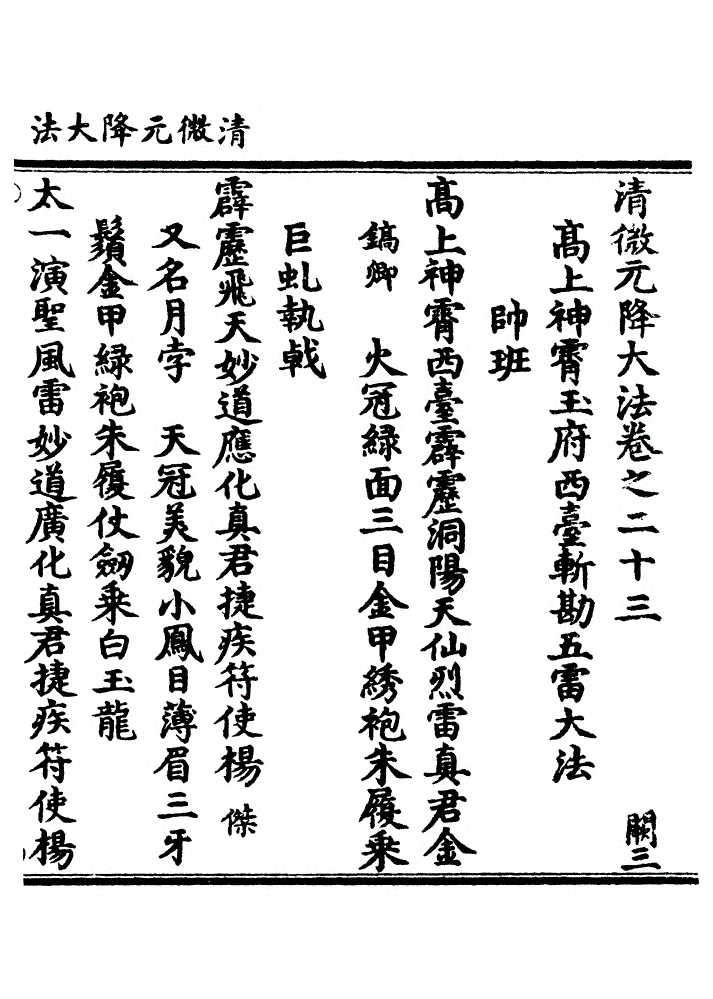 清微元降大法
清微元降大法卷之二十三 闕三
髙上神霄玉府西臺斬勘五雷大法
帥班
髙上神霄西臺霹靂洞陽天仙烈雷真君金
鎬卿 火冠緑面三目金甲綉袍朱履乘
巨虬執戟
霹靂飛天妙道應化真君捷疾符使楊傑
又名月孛 天冠美貌小鳳目薄眉三牙
鬚金甲緑袍朱履仗劒乘白玉龍
太一演聖風雷妙道廣化真君捷疾符使楊